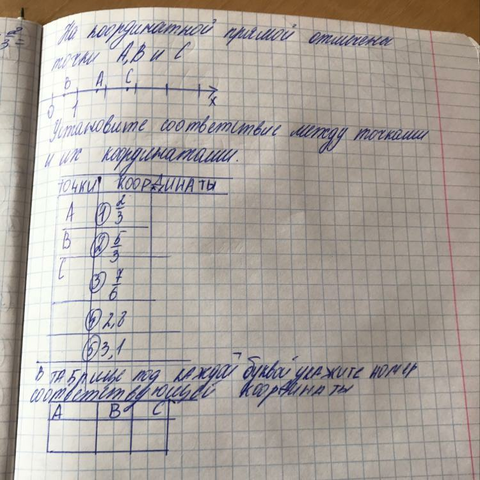 На координатной прямой отмечены
точки A, B и C
B A C
0 1 x
Установите соответствие между точками
и их координатами.
ТОЧКИ КООРДИНАТЫ
A ① 2/3
B ② 5/3
C ③ 7/6
④ 2,8
⑤ 3,1
В таблице под каждой буквой укажите номер
соответствующей координаты
A B C